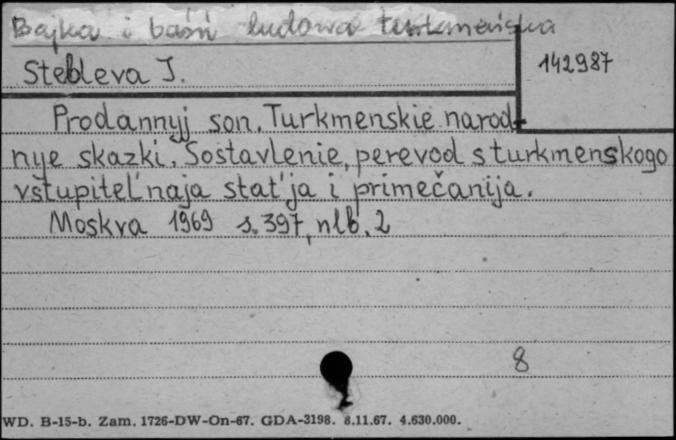 Bajka i baśń ludowa turkmeńska
Stebleva J.
142987
Prodannyj son. Turkmenskie narod-
nye skazki. Sostavlenie, perevod s turkmenskogo
vstupitel'naja stat'ja i primečanija.
Moskva 1969 s. 397, nlb. 2
8
WD. B-15-b. Zam. 1726-DW-On-67. GDA-3198. 8.11.67. 4.630.000.